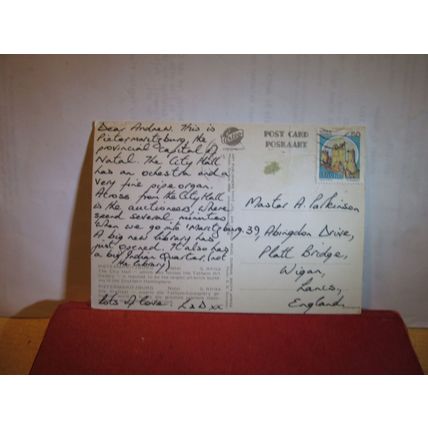 Dear Andrew. This is
Pietermaritzburg, the
provincial capital of
Natal. The City Hall
has an ochestra and a
very fine pipe organ.
Across from the City Hall
is the auctioneers, where
several minutes
when we go into 'Maritzburg.
A big new library has
just opened. It also has
a big Indian Quarter. (not
the library)
lots of love. L & D xx
POST CARD
POSKAART
Master A. Parkinson
39, Abingdon Drive,
Platt Bridge,
Wigan,
Lancs,
England.